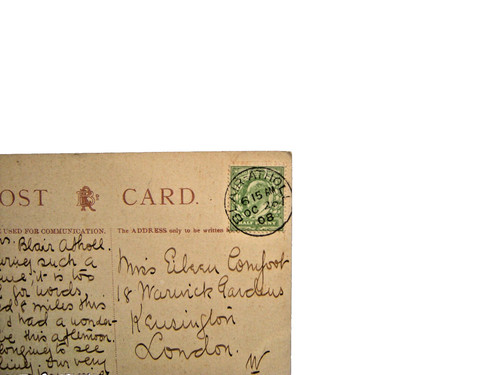 OST CARD.
E USED FOR COMMUNICATION.
The ADDRESS only to be written
BLAIR-ATHOLL
6.15 PM
OC
08
Blair Atholl.
such a
it is too
for words
miles this
I had a wonder-
this afternoon.
longing to see
our very
Miss Eileen Comfoot
18 Warwick Gardens
Kensington
London.
W